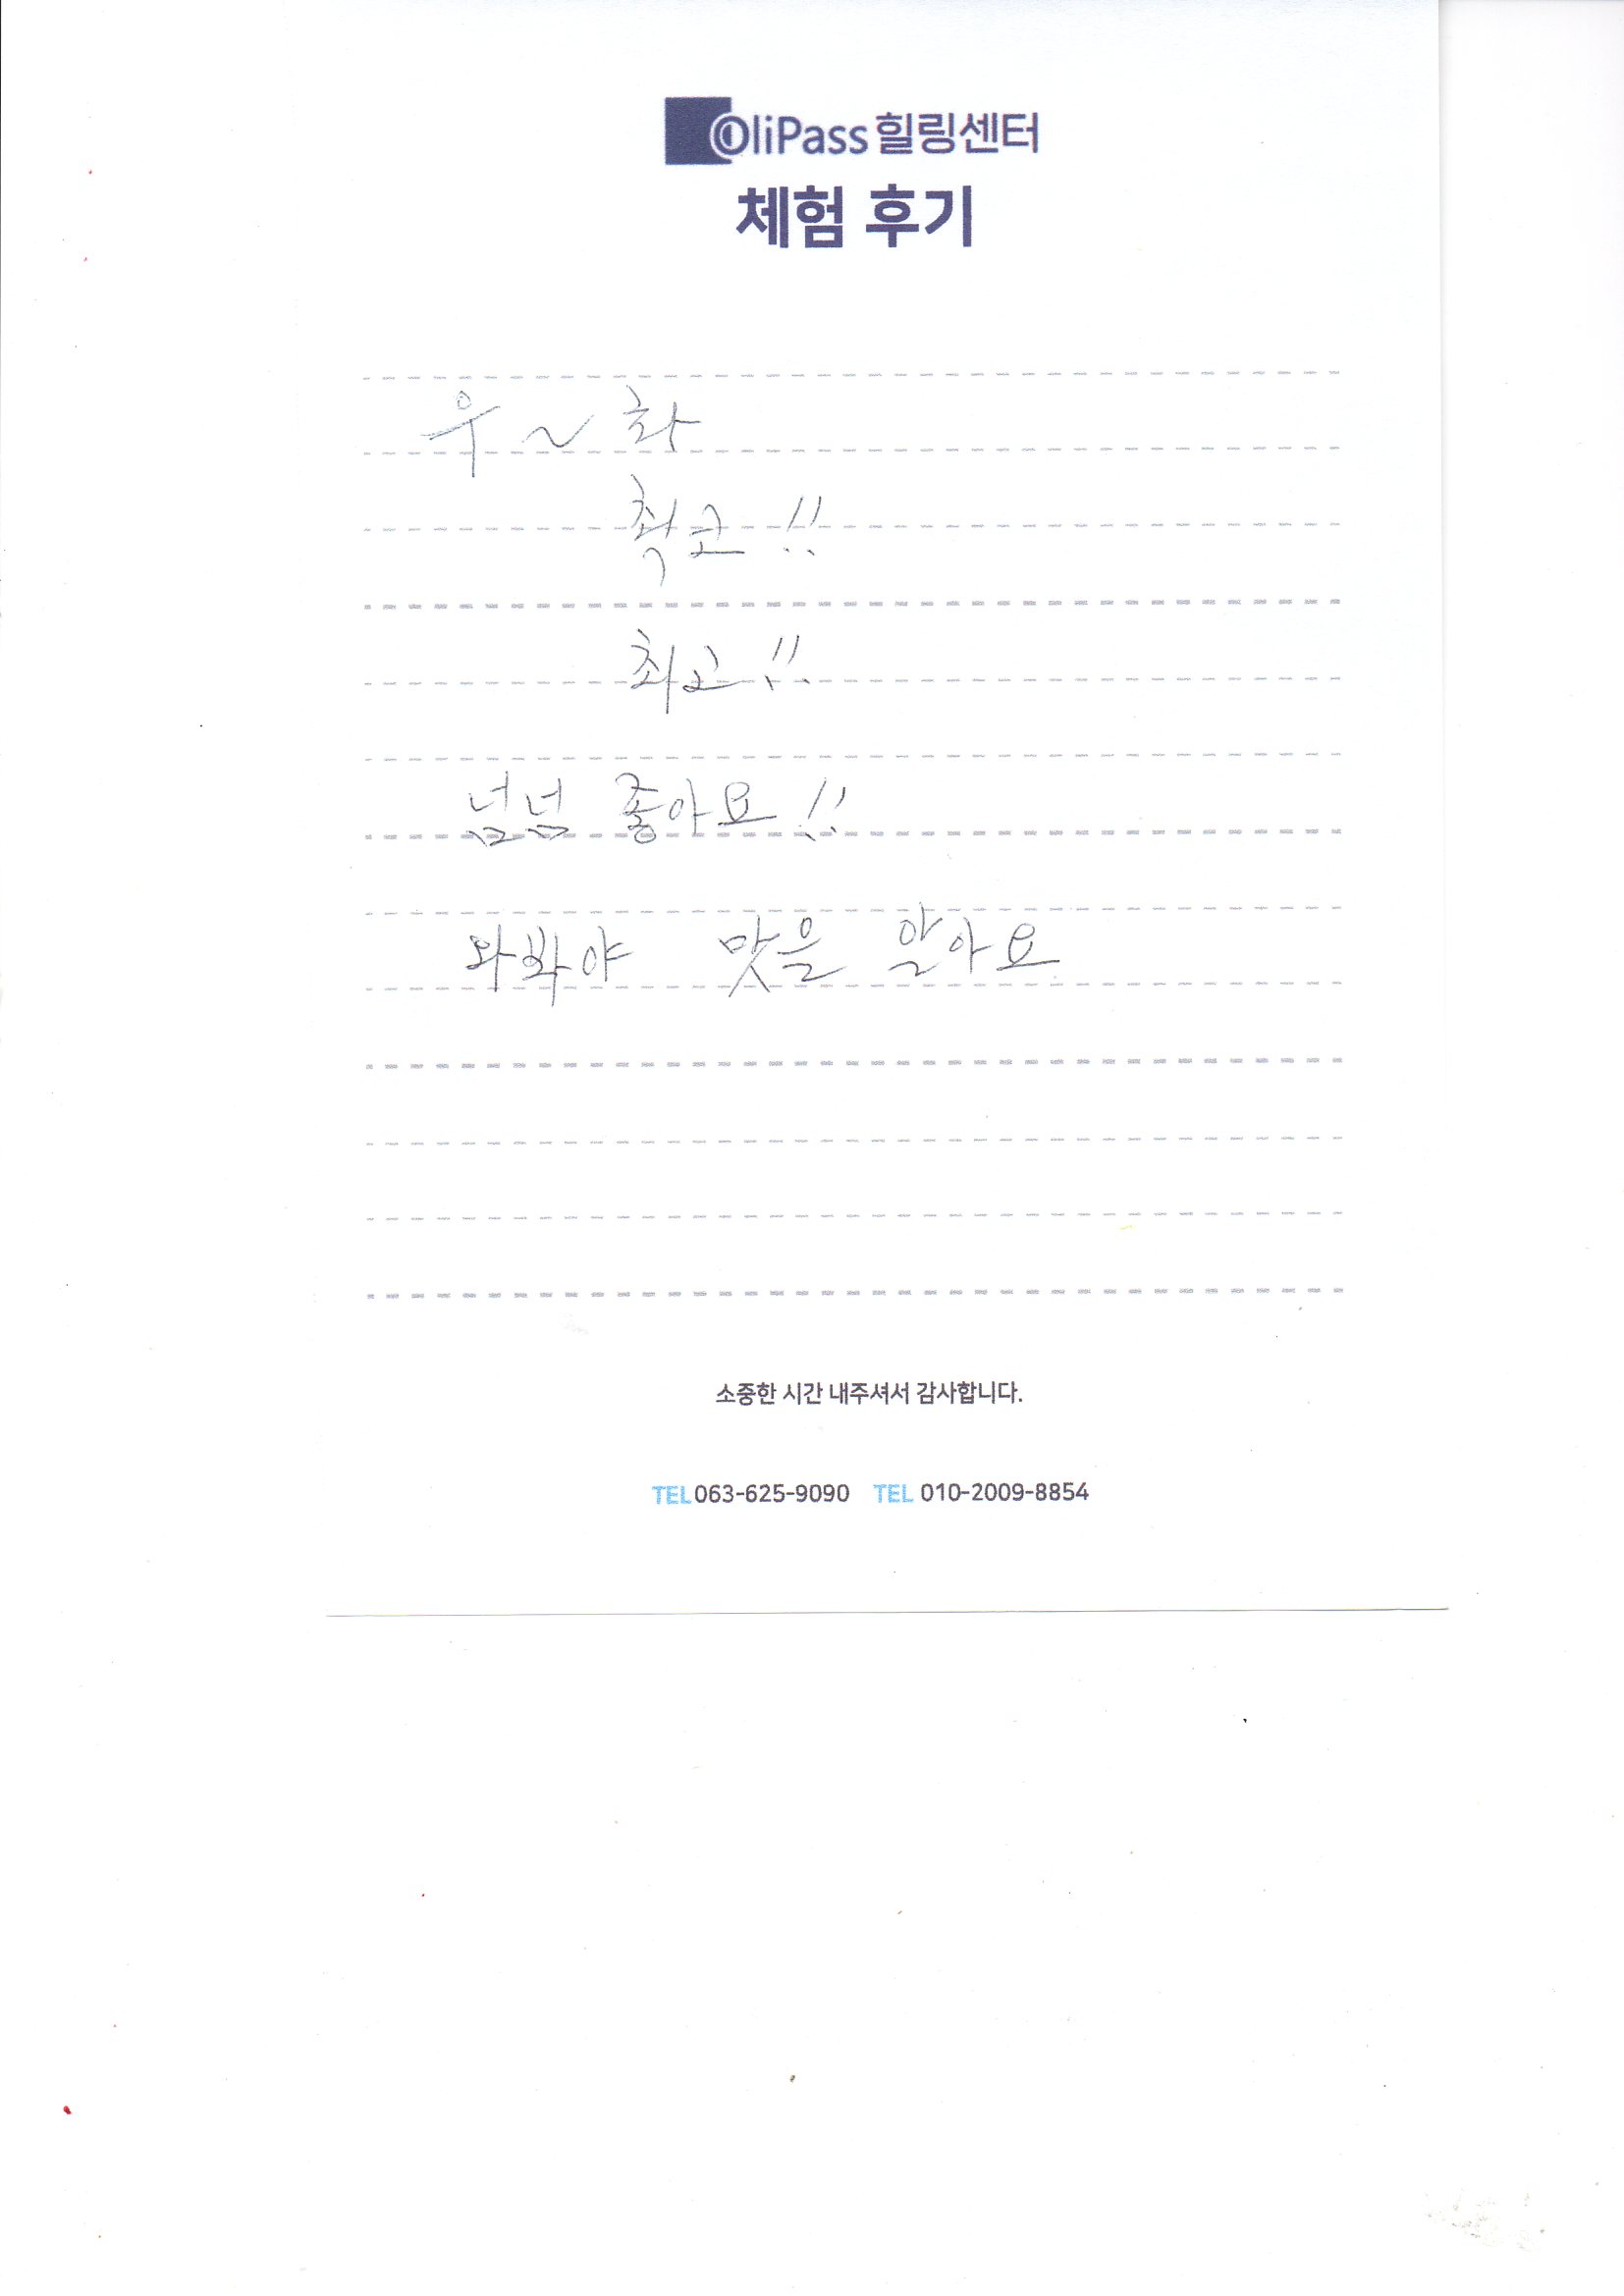 OliPass 힐링센터
체험 후기
우~화
최고!!
최고!!
넘넘 좋아요!!
와봐야 맛을 알아요
소중한 시간 내주셔서 감사합니다.
TEL 063-625-9090 TEL 010-2009-8854